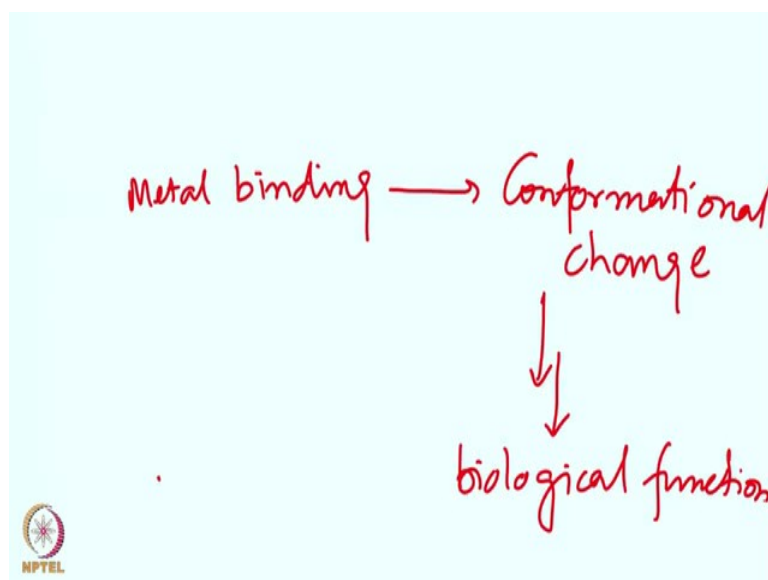 Metal binding → Conformational
change
biological function
NPTEL